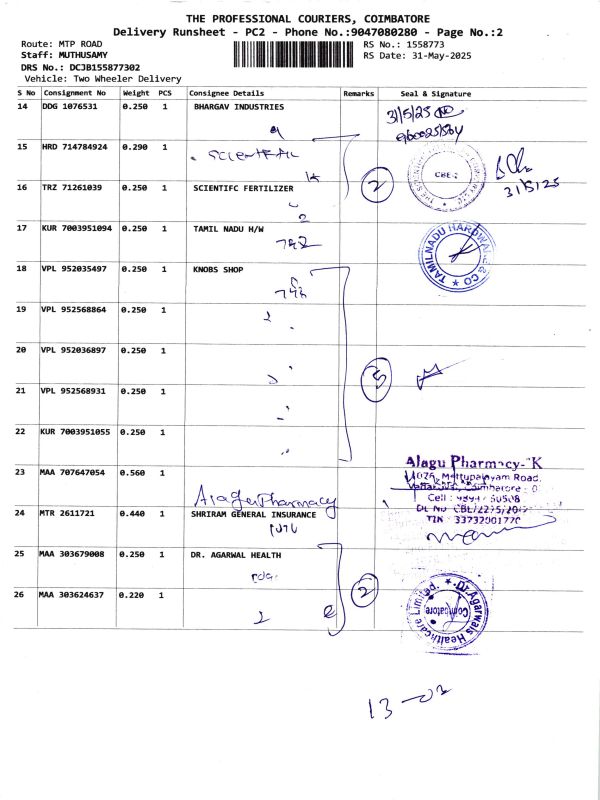 THE PROFESSIONAL COURIERS, COIMBATORE
Delivery Runsheet - PC2 - Phone No.:9047080280 - Page No.:2
Route: MTP ROAD
RS No.: 1558773
Staff: MUTHUSAMY
RS Date: 31-May-2025
DRS No.: DCJB155877302
Vehicle: Two Wheeler Delivery
S No Consignment No Weight PCS Consignee Details Remarks Seal & Signature
14 DDG 1076531 0.250 1 BHARGAV INDUSTRIES
31/5/25
15 HRD 714784924 0.290 1
Scientific
CBE-2
31/5/25
16 TRZ 71261039 0.250 1 SCIENTIFC FERTILIZER
2
17 KUR 7003951094 0.250 1 TAMIL NADU H/W
742
TAMILNADU HARDWARE & CO
18 VPL 952035497 0.250 1 KNOBS SHOP
743
19 VPL 952568864 0.250 1
20 VPL 952036897 0.250 1
5
21 VPL 952568931 0.250 1
22 KUR 7003951055 0.250 1
23 MAA 707647054 0.560 1
Alagu Pharmacy
Alagu Pharmacy-K
Mettupalayam Road,
Coimbatore
Cell :
24 MTR 2611721 0.440 1 SHRIRAM GENERAL INSURANCE
TIN : 33732001770
25 MAA 303679008 0.250 1 DR. AGARWAL HEALTH
2
26 MAA 303624637 0.220 1
Dr.Agarwals Healthcare Limited.
Coimbatore
13-02